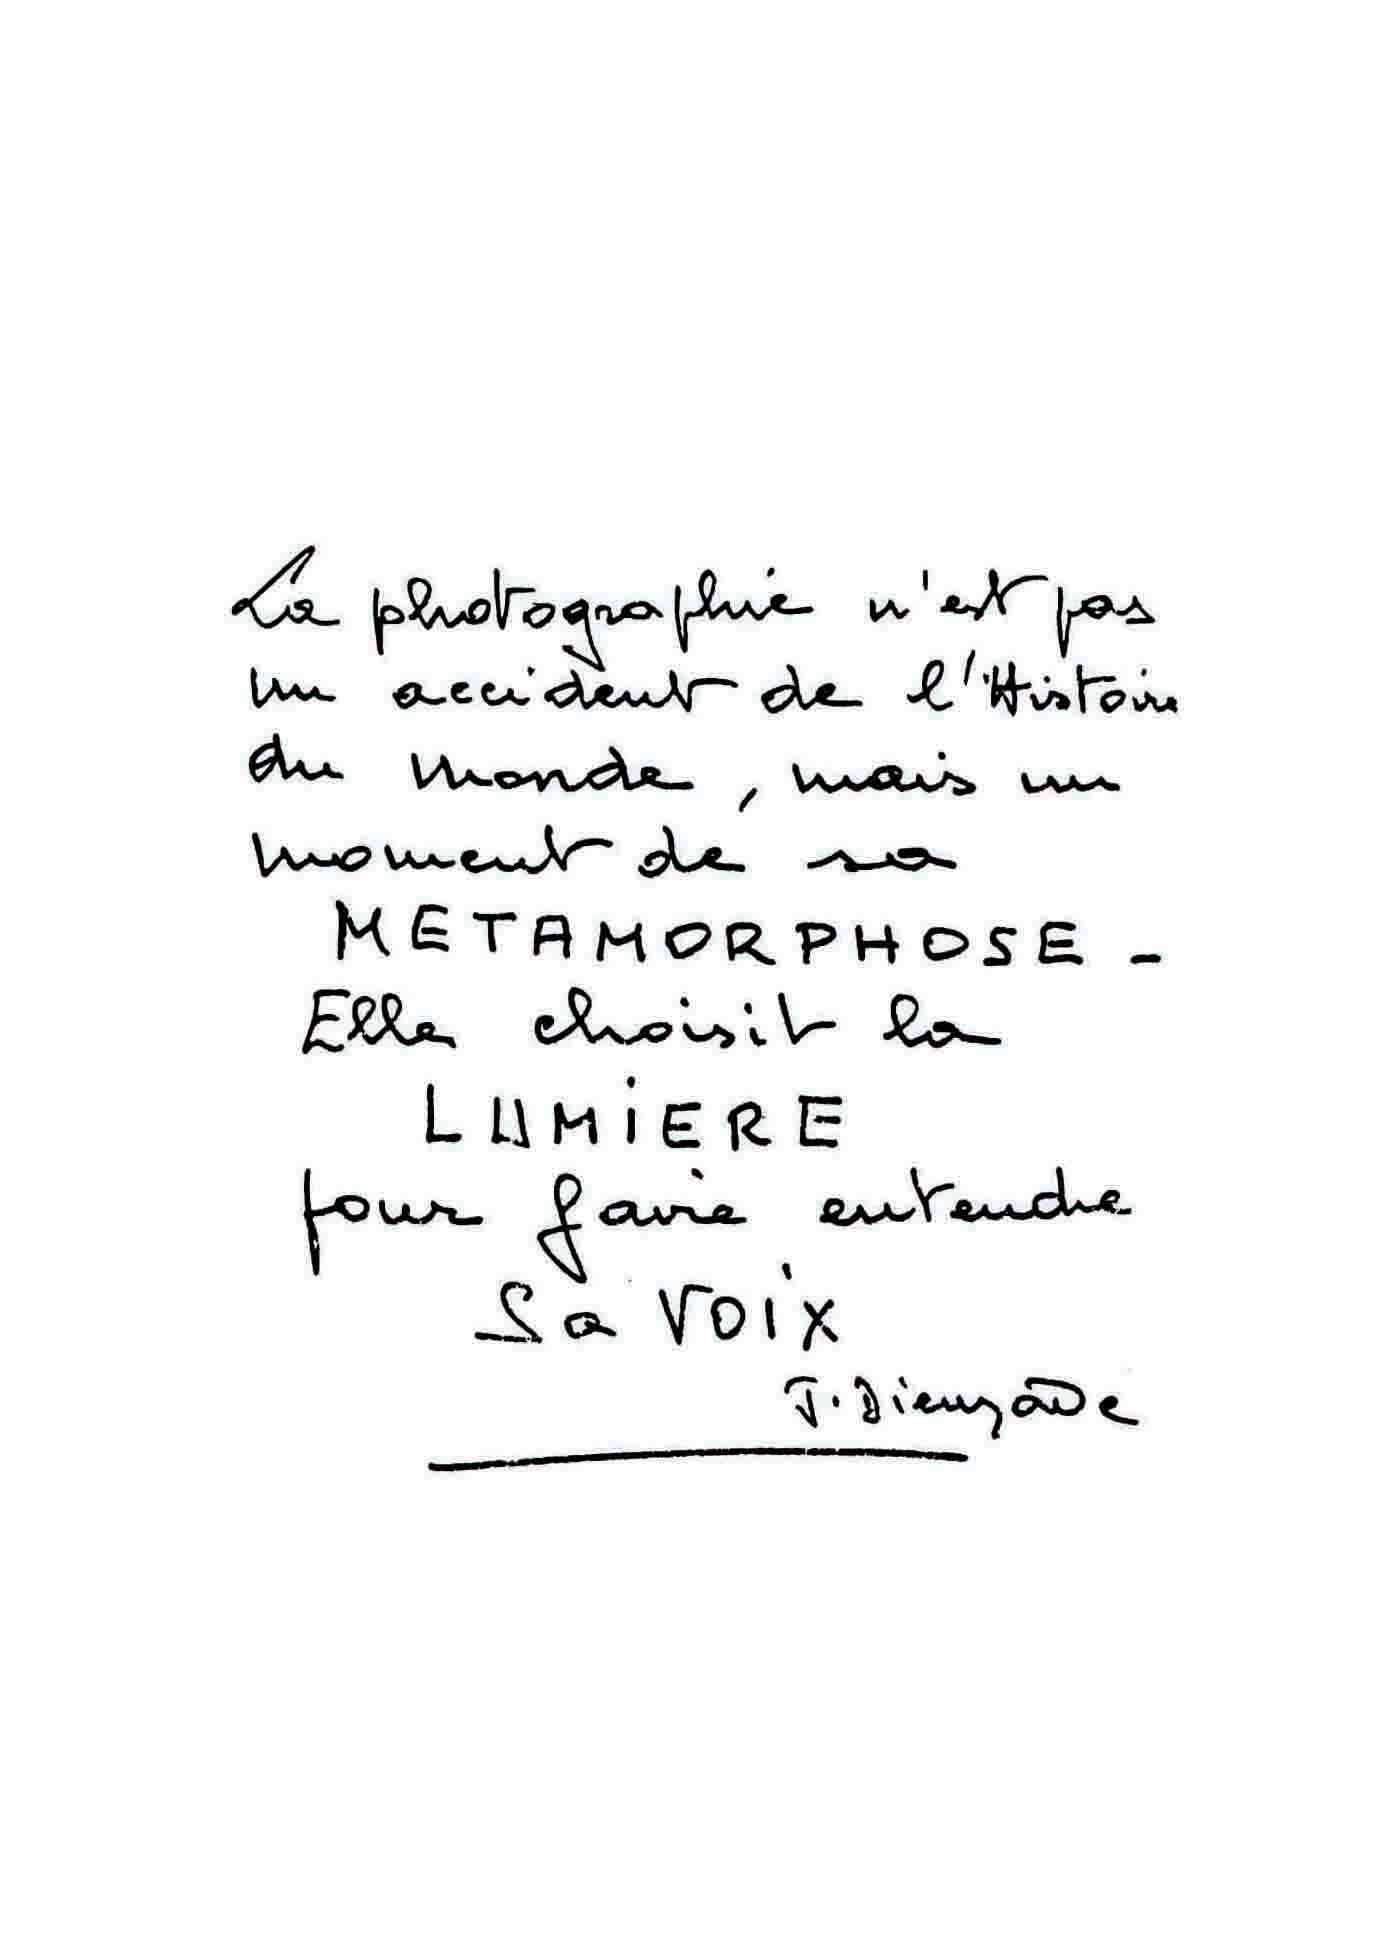 La photographie n'est pas
un accident de l'Histoire
du monde, mais un
moment de sa
METAMORPHOSE -
Elle choisit la
LUMiERE
pour faire entendre
Sa VOiX
J. Dieuzaide